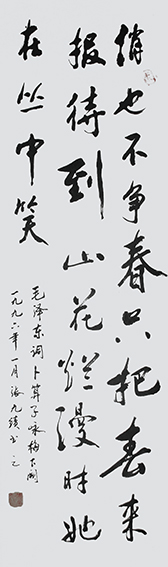 俏也不争春只把春来
报待到山花烂漫时她
在丛中笑
毛泽东词卜算子咏梅下阕
一九九六年一月张九
书之